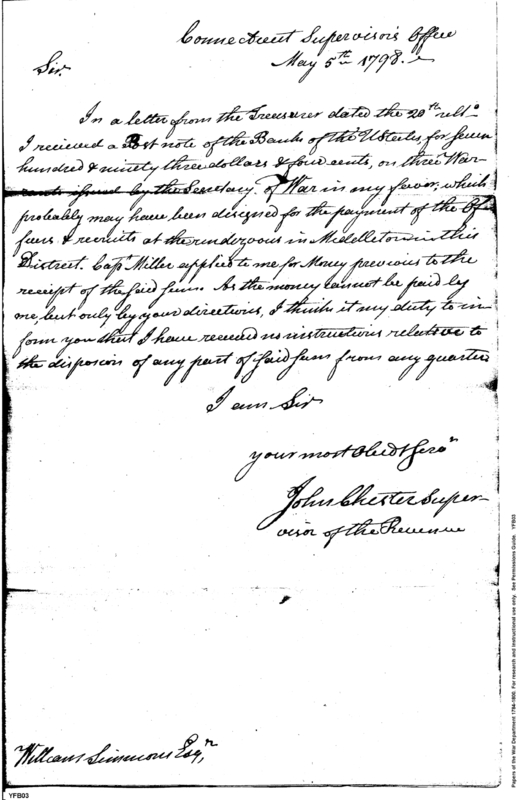 Connecticut Supervisor's Office
May 5th 1798.
Sir.
In a letter from the Treasurer dated the 20th ulto
I recieved a Post note of the Bank of the U States, for Seven
hundred & ninety three dollars & four cents, on three War-
rants issued by the Secretary of War in my favor, which
probably may have been designed for the payment of the Of-
ficers & recruits at the rendezvous in Middletown in this
District. Capt Miller applied to me for Money previous to the
receipt of the said sum. As the money cannot be paid by
me but only by your directions, I think it my duty to in-
form you that I have received no instructions relative to
the disposion of any part of said sum from any quarter
I am Sir
your most Obedt Servt
John Chester Super-
visor of the Revenue
William Simmons Esqr,
YFB03
Papers of the War Department 1784-1800. For research and instructional use only. See Permissions Guide. YFB03